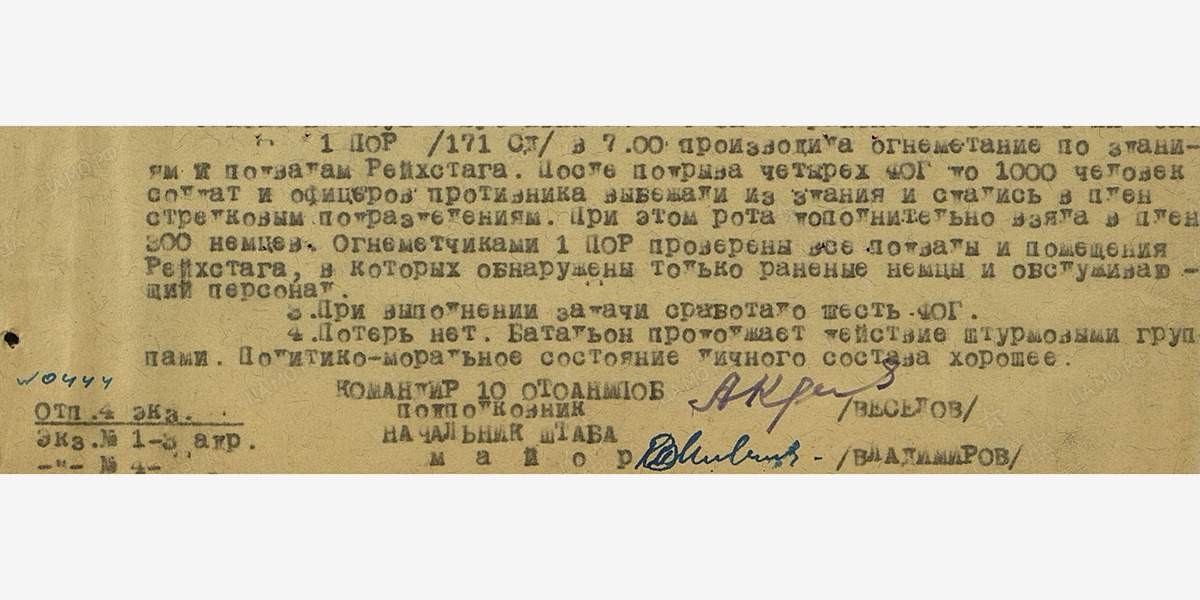 1 ПОР /171 СД/ в 7.00 производила огнеметание по здани-
ям и подвалам Рейхстага. После подрыва четырех ФОГ до 1000 человек
солдат и офицеров противника выбежали из здания и сдались в плен
стрелковым подразделениям. При этом рота дополнительно взяла в плен
300 немцев. Огнеметчиками 1 ПОР проверены все подвалы и помещения
Рейхстага, в которых обнаружены только раненые немцы и обслуживаю-
щий персонал.
3.При выполнении задачи сработало шесть ФОГ.
4.Потерь нет. Батальон продолжает действие штурмовыми груп-
пами. Политико-моральное состояние личного состава хорошее.
КОМАНДИР 10 ОТОАНМПОБ
ПОДПОЛКОВНИК /ВЕСЕЛОВ/
НАЧАЛЬНИК ШТАБА
м а й о р /ВЛАДИМИРОВ/
№0444
Отп.4 экз.
Экз.№ 1-3 адр.
-"- № 4-